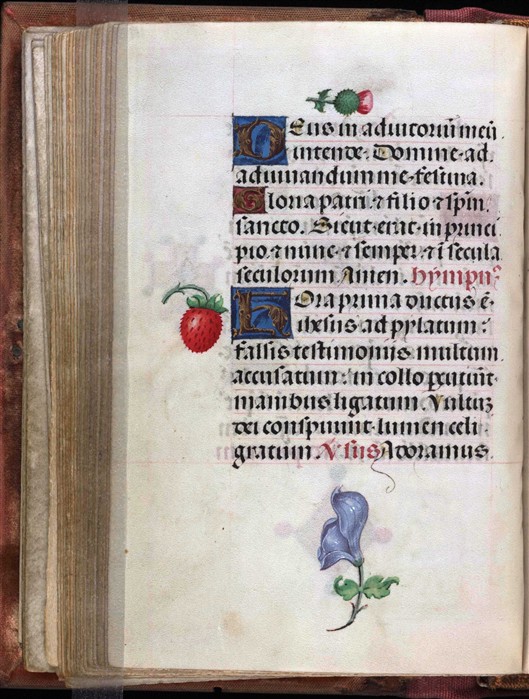 Deus in adiutoriū meū
intende. Domine ad
adiuuandum me festina.
Gloria patri. ⁊ filio ⁊ spiri̅.
sancto. Sicut erat in princi
pio. ⁊ nunc ⁊ semper. ⁊ ī secula
seculorum Amen. hympnꝰ
Hora prima ductus ē.
ihesus ad pylatum:
falsis testimonijs multum
accusatum. in collo percutiūt
manibus ligatum. Vultuʒ
dei conspuunt lumen celi
gratum. Vsus Adoramus